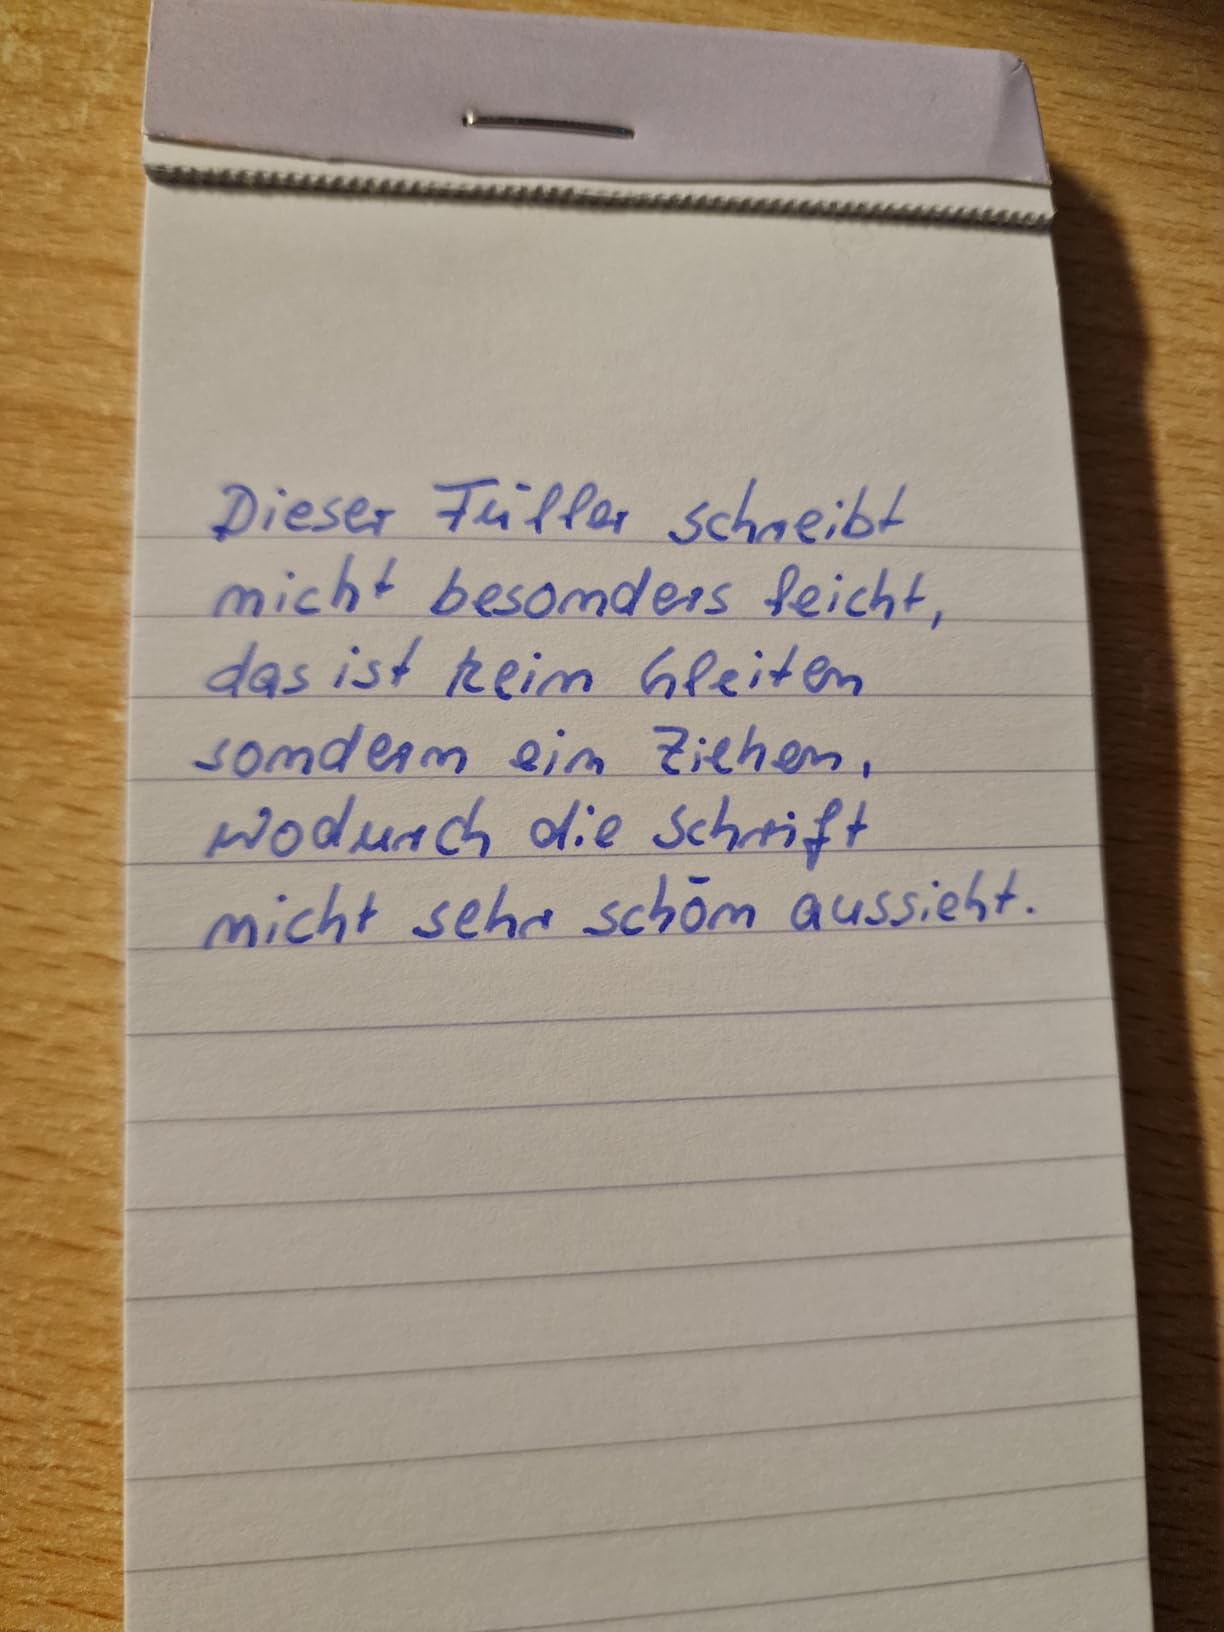 Dieser Füller schreibt
nicht besonders leicht,
das ist kein Gleiten
sondern ein Ziehen,
wodurch die Schrift
nicht sehr schön aussieht.